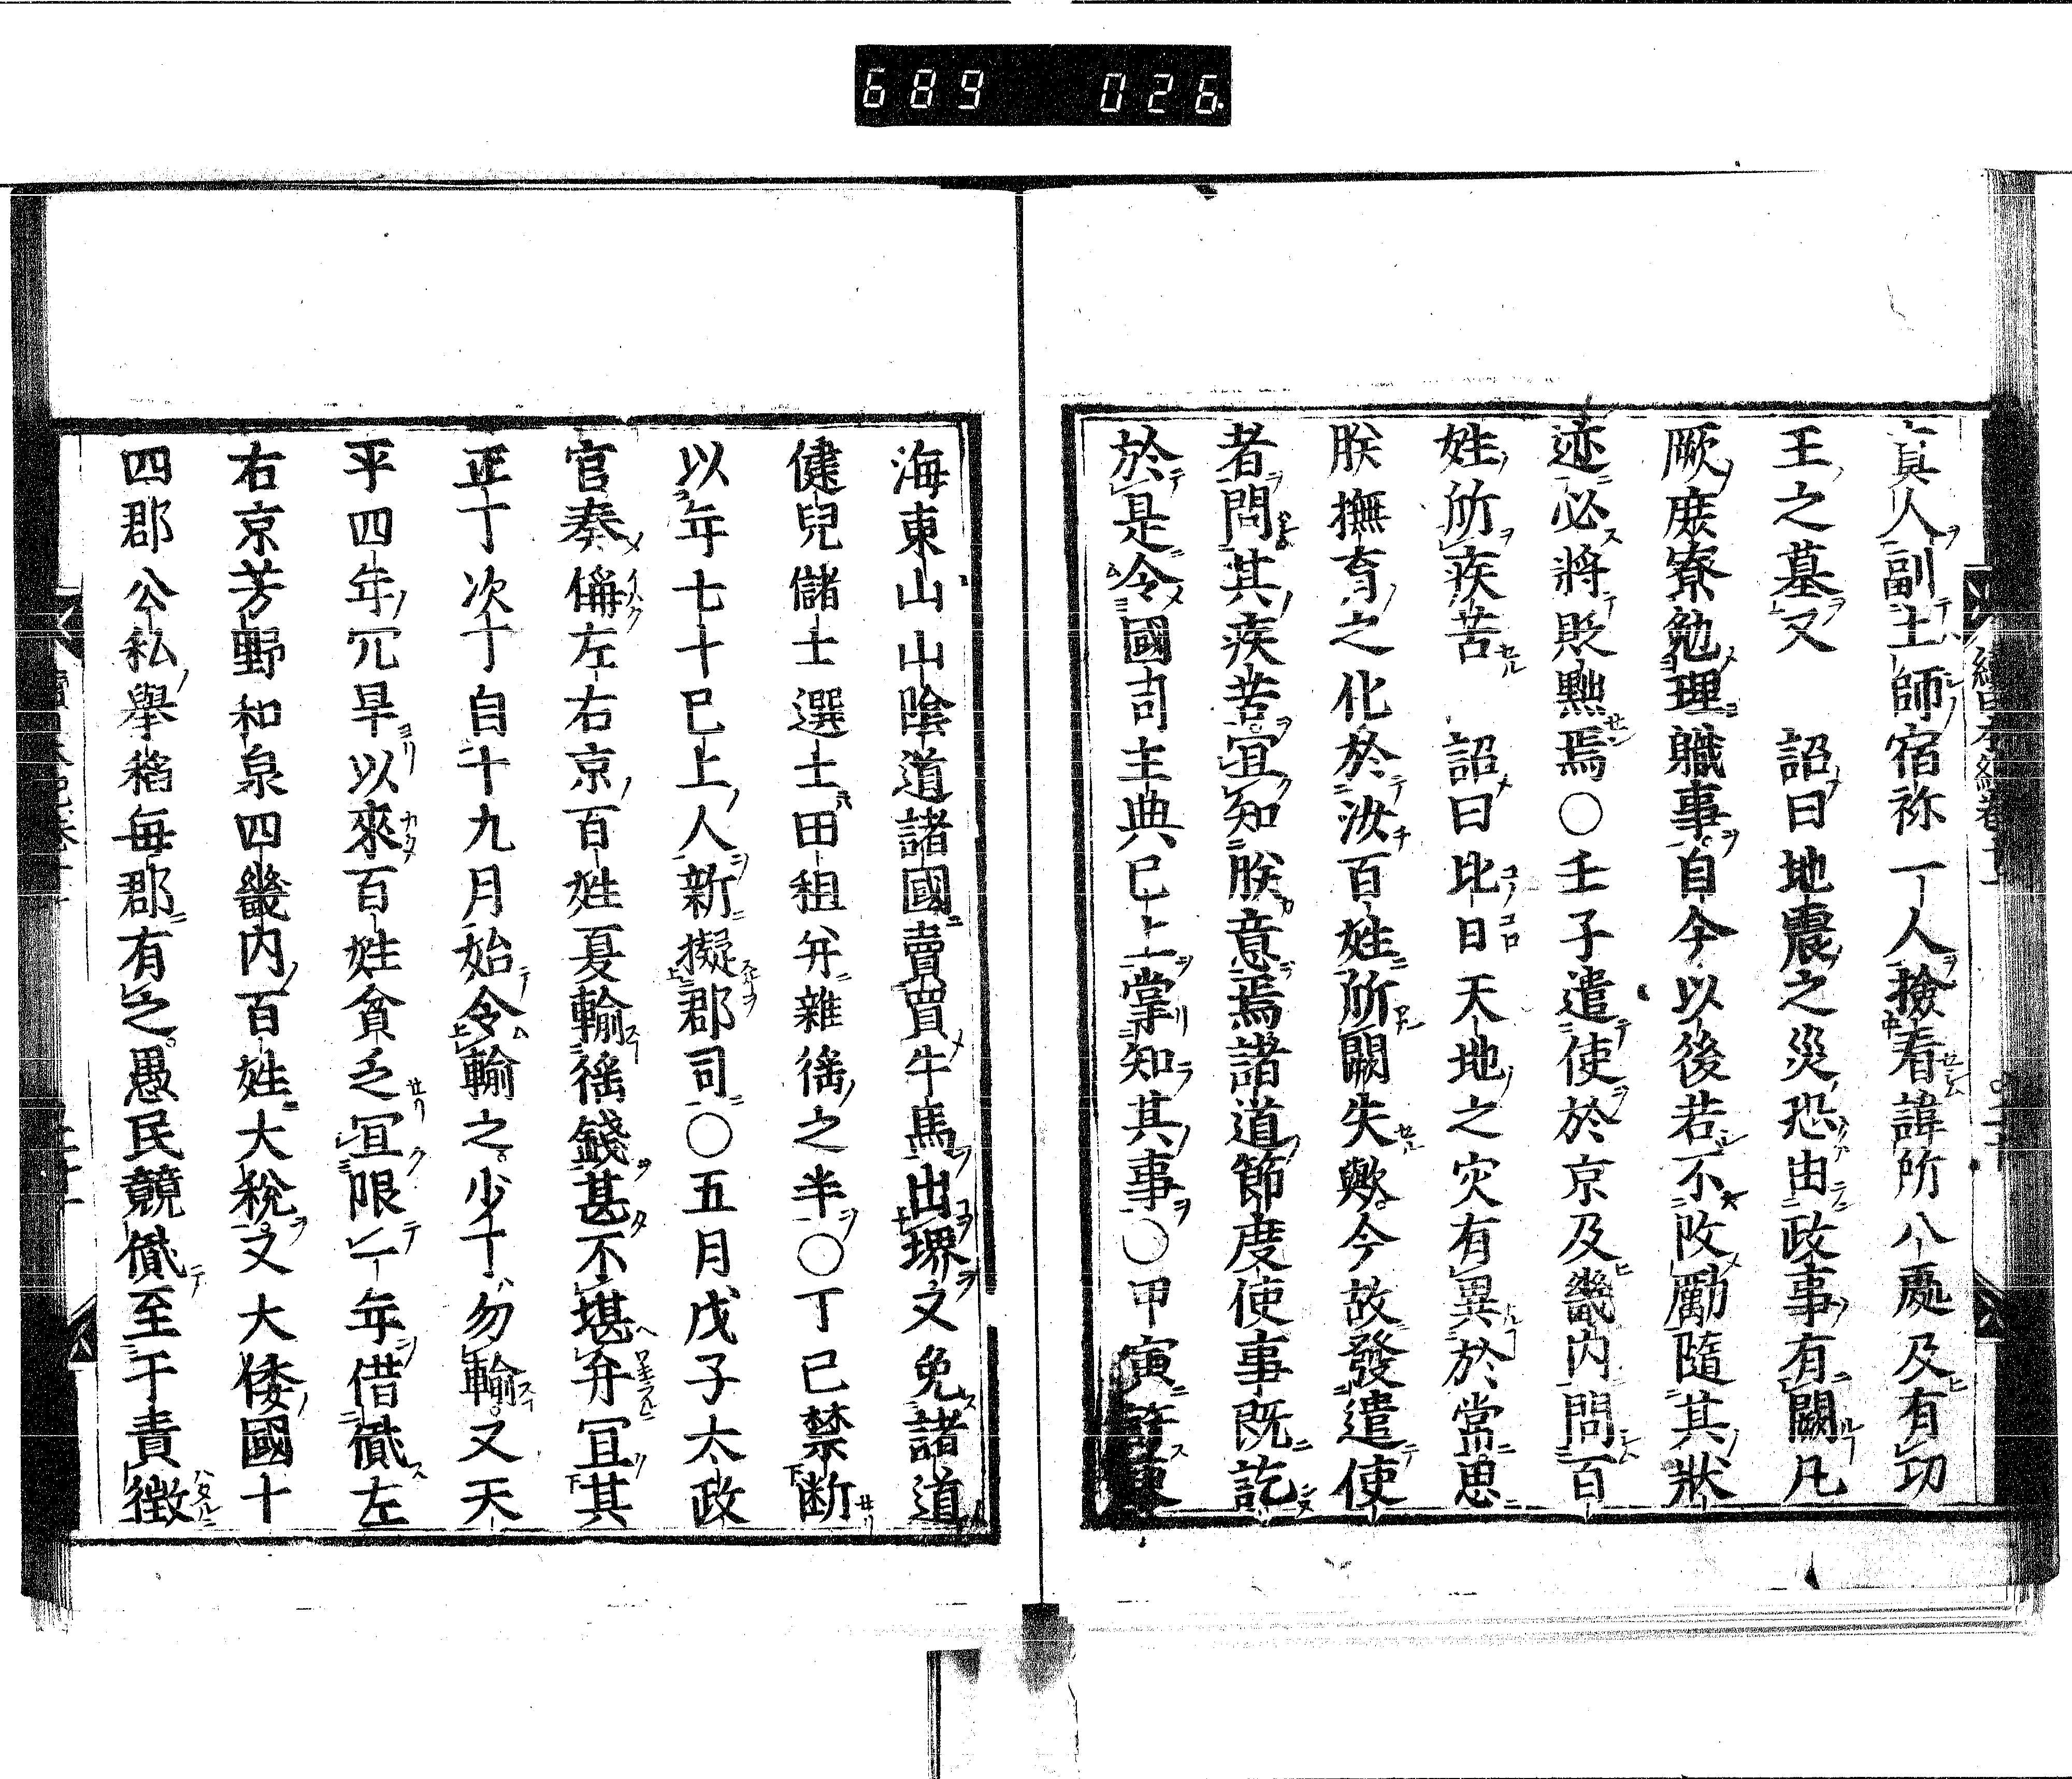 689 026
真人副土師宿祢一人撿看諱所八處及有功
王之墓又 詔曰地震之災恐由政事有闕凡
厥庶寮勉理職事自今以後若不改勵隨其狀
迹必將貶黜焉○壬子遣使於京及畿内問百
姓所疾苦 詔曰比日天地之灾有異於常思
朕撫育之化於汝百姓所闕失歟今故發遣使
者問其疾苦宜知朕意焉諸道節度使事既訖
於是令國司主典巳上掌知其事○甲寅許東
海東山山陰道諸國賣買牛馬出堺又免諸道
健兒儲士選士田租并雜徭之半○丁巳禁断
以年七十巳上人新擬郡司○五月戊子太政
官奏偁左右京百姓夏輸徭錢甚不堪弁宜其
正丁次丁自十九月始令輸之少丁勿輸又天
平四年亢旱以來百姓貧乏宜限一年借貸左
右京芳野和泉四畿内百姓大稅又大倭國十
四郡公私舉稻每郡有之愚民競貸至于責徴